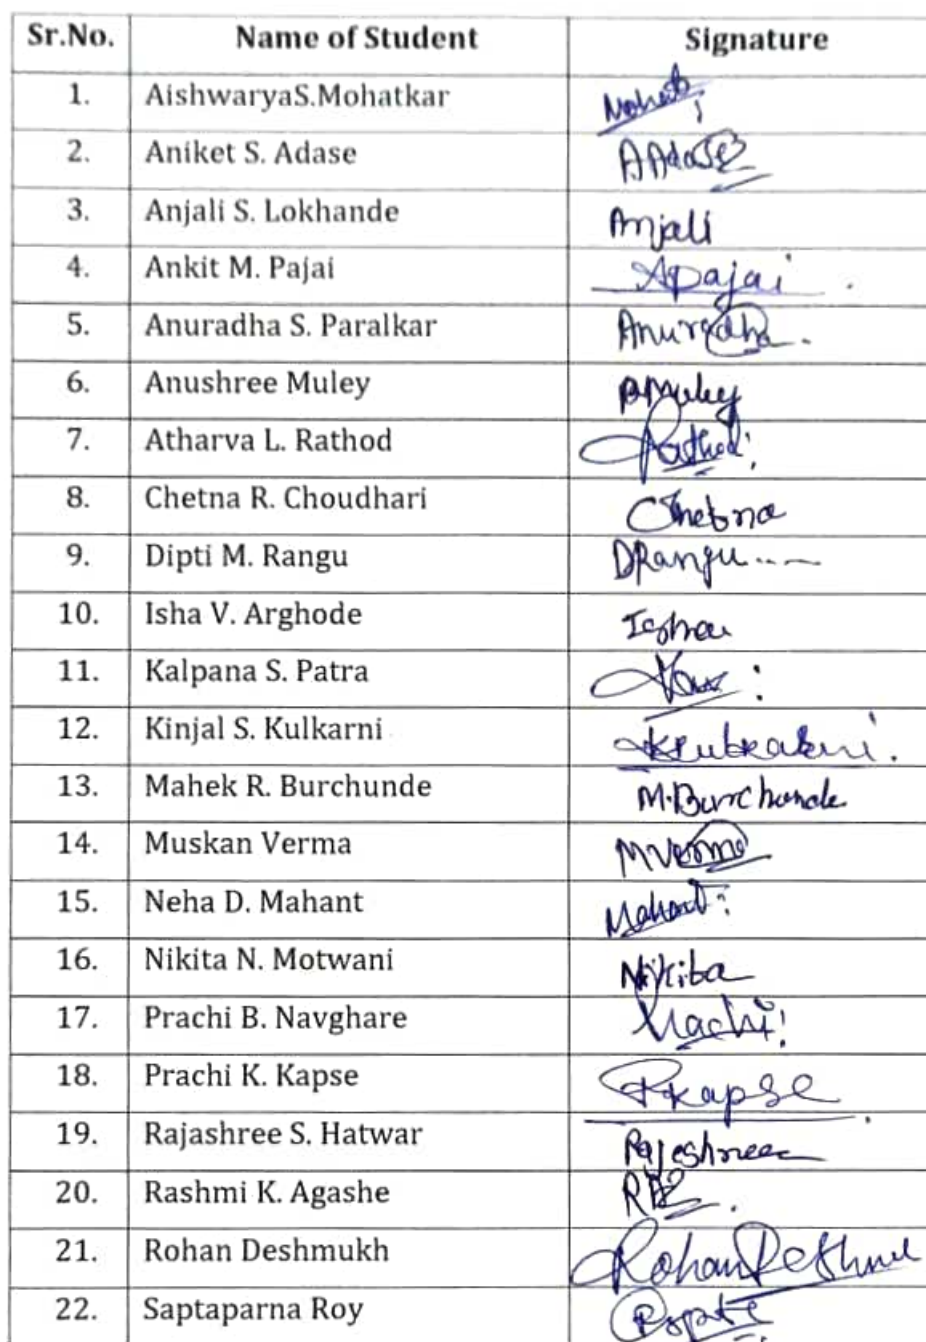 Sr.No. Name of Student Signature
1. AishwaryaS.Mohatkar
2. Aniket S. Adase AAdase
3. Anjali S. Lokhande Anjali
4. Ankit M. Pajai Apajai
5. Anuradha S. Paralkar Anuradha.
6. Anushree Muley AMuley
7. Atharva L. Rathod Rathod
8. Chetna R. Choudhari Chetna
9. Dipti M. Rangu DRangu
10. Isha V. Arghode Isha
11. Kalpana S. Patra
12. Kinjal S. Kulkarni KKulkarni.
13. Mahek R. Burchunde M.Burchunde
14. Muskan Verma MVerma
15. Neha D. Mahant Mahant
16. Nikita N. Motwani Nikita
17. Prachi B. Navghare Prachi
18. Prachi K. Kapse PKapse
19. Rajashree S. Hatwar Rajeshree
20. Rashmi K. Agashe
21. Rohan Deshmukh Rohan
22. Saptaparna Roy